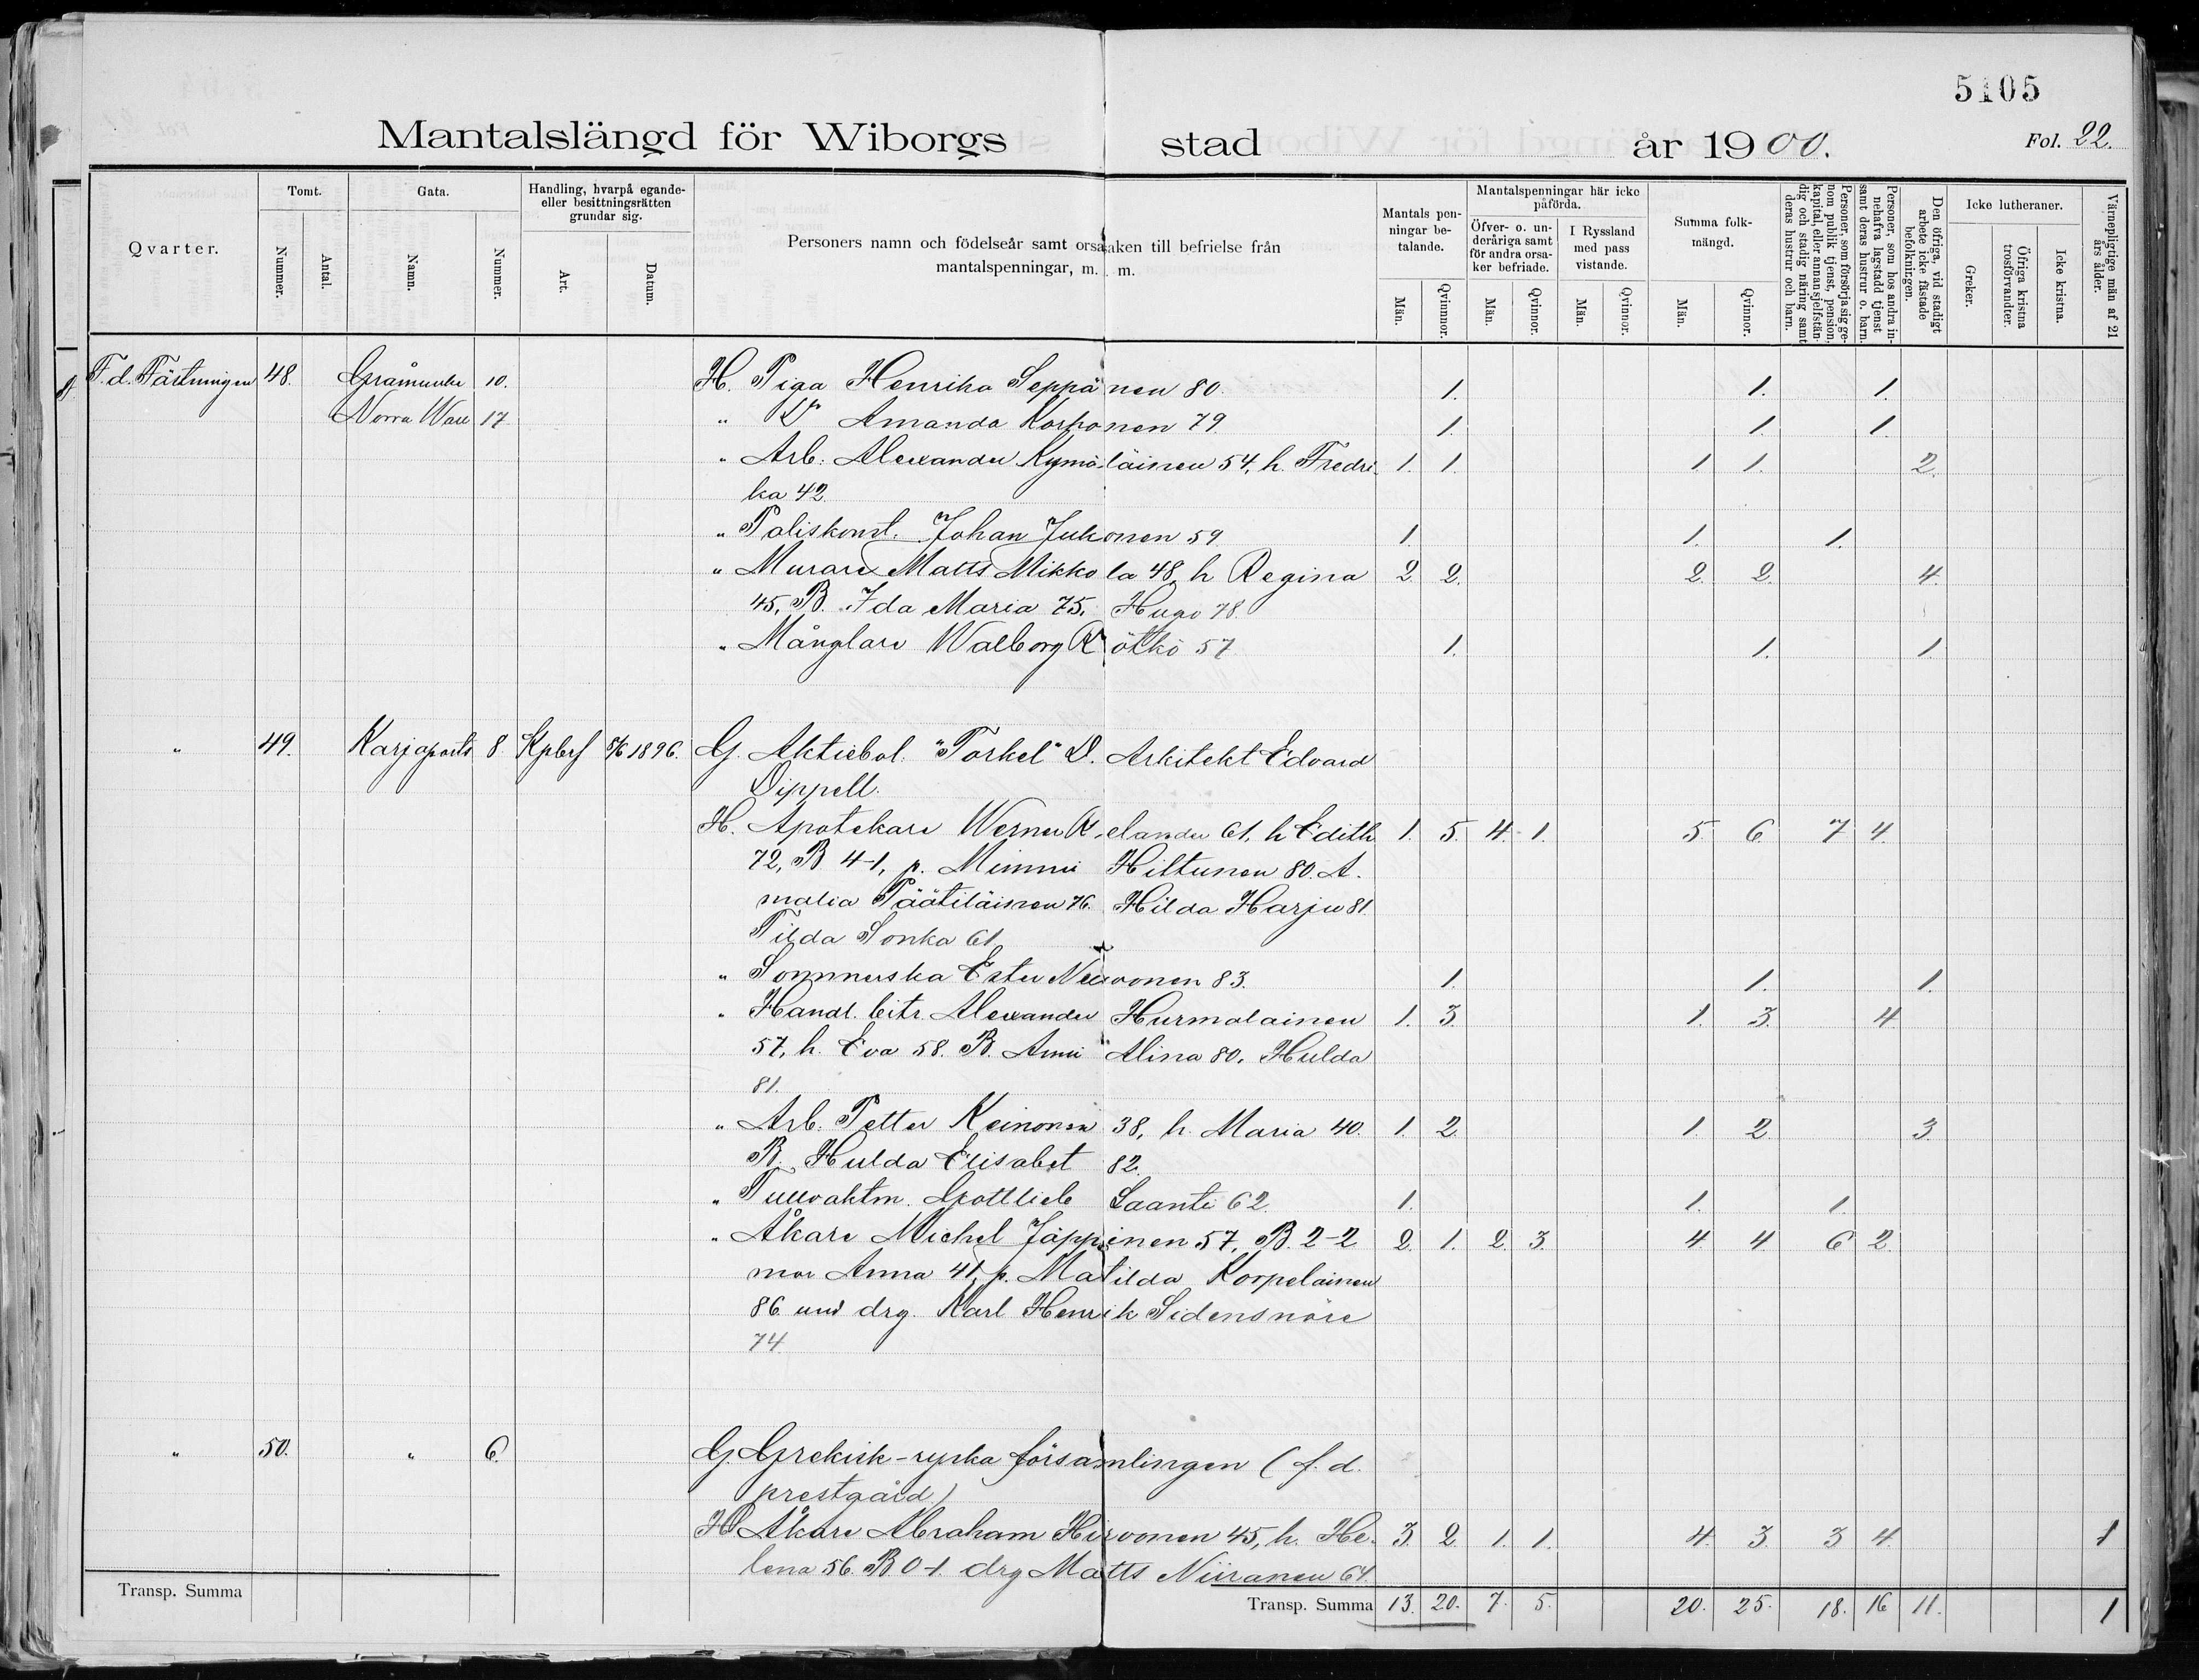 5105
Mantalslängd för Wiborgs stad år 1900.
Fol. 22.
Qvarter.
Tomt.
Nummer.
Antal.
Gata.
Namn.
Nummer.
Handling, hvarpå egande-
eller besittningsrätten
grundar sig.
Art.
Datum.
Personers namn och födelseår samt orsaken till befrielse från
mantalspenningar, m. m.
Mantals pen-
ningar be-
talande.
Män.
Qvinnor.
Mantalspenningar här icke
påförda.
Öfver- o. un-
deråriga samt
för andra orsa-
ker befriade.
Män.
Qvinnor.
I Ryssland
med pass
vistande.
Män.
Qvinnor.
Summa folk-
mängd.
Män.
Qvinnor.
Personer, som försörja sig ge-
nom publik tjenst, pension,
kapital, eller annan sjelfstän-
dig och stadig näring samt
deras hustrur och barn.
Personer, som hos andra in-
nehafva lagstadd tjenst
samt deras hustrur o. barn.
Den öfriga, vid stadigt
arbete icke fästade
befolkningen.
Icke lutheraner.
Greker.
Öfriga kristna
trosförvandter.
Icke kristna.
Värnepligtige män af 21
års ålder.
F. d. Fästningen 48. Gråmunke 10. H. Piga Henrika Seppänen 80. 1. 1. 1.
Norra Wall 17 " Dº Amanda Korhonen 79. 1. 1. 1.
" Arb. Alexander Kymäläinen 54, h. Fredri- 1. 1. 1 1. 2.
ka 42.
" Poliskonst. Johan Jukonen 59 1. 1. 1.
" Murare Matts Mikkola 48, h Regina 2. 2. 2. 2. 4.
45, B. Ida Maria 75, Hugo 78.
" Månglare Walborg Rötkö 57 1. 1. 1.
" 49. Karjaports 8. Kpbrf 5/6 1896. G. Aktiebol. "Torkel" D. Arkitekt Edvard
Dippell.
H. Apotekare Werner Kelander 61, h Edith 1. 5. 4. 1. 5. 6. 7 4.
72, B 4-1, p. Mimmi Hiltunen 80. A-
malia Päätiläinen 76. Hilda Harju 81
Tilda Sonka 61
" Sömmerska Ester Neuvonen 83. 1. 1. 1.
" Handl. bitr. Alexander Hurmalainen 1. 3. 1. 3. 4
57, h. Eva 58. B. Anni Alina 80, Hulda
81.
" Arb. Petter Keinonen 38, h. Maria 40. 1. 2. 1. 2. 3.
B. Hulda Elisabet 82.
" Tullvaktm. Gottlieb Saanti 62. 1. 1. 1.
" Åkare Michel Jäppinen 57, B. 2-2 2. 1. 2. 3. 4. 4 6 2.
mor Anna 41, p. Matilda Korpelainen
86 und drg. Karl Henrik Sidensnöre
74
" 50. " 6. G. Grekisk-ryska församlingen (f. d.
prestgård)
H Åkare Abraham Hirvonen 45, h. He- 3. 2. 1. 1. 4. 3. 3 4. 1
lena 56. B 0-1. drg Matts Niiranen 64.
Transp. Summa Transp. Summa 13. 20. 7. 5. 20. 25. 18. 16 11. 1